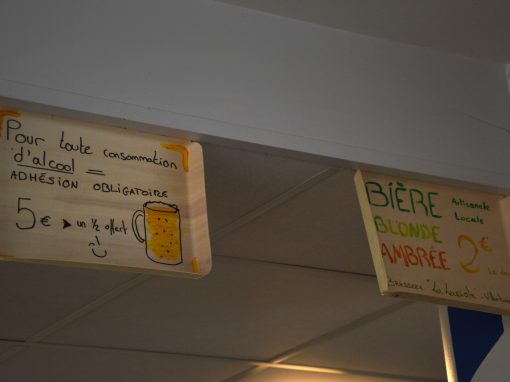 Pour toute consommation
d'alcool =
ADHÉSION OBLIGATOIRE
5€ ➤ un ½ offert
BIÈRE Artisanale
Locale
BLONDE
AMBRÉE 2€
Brasserie